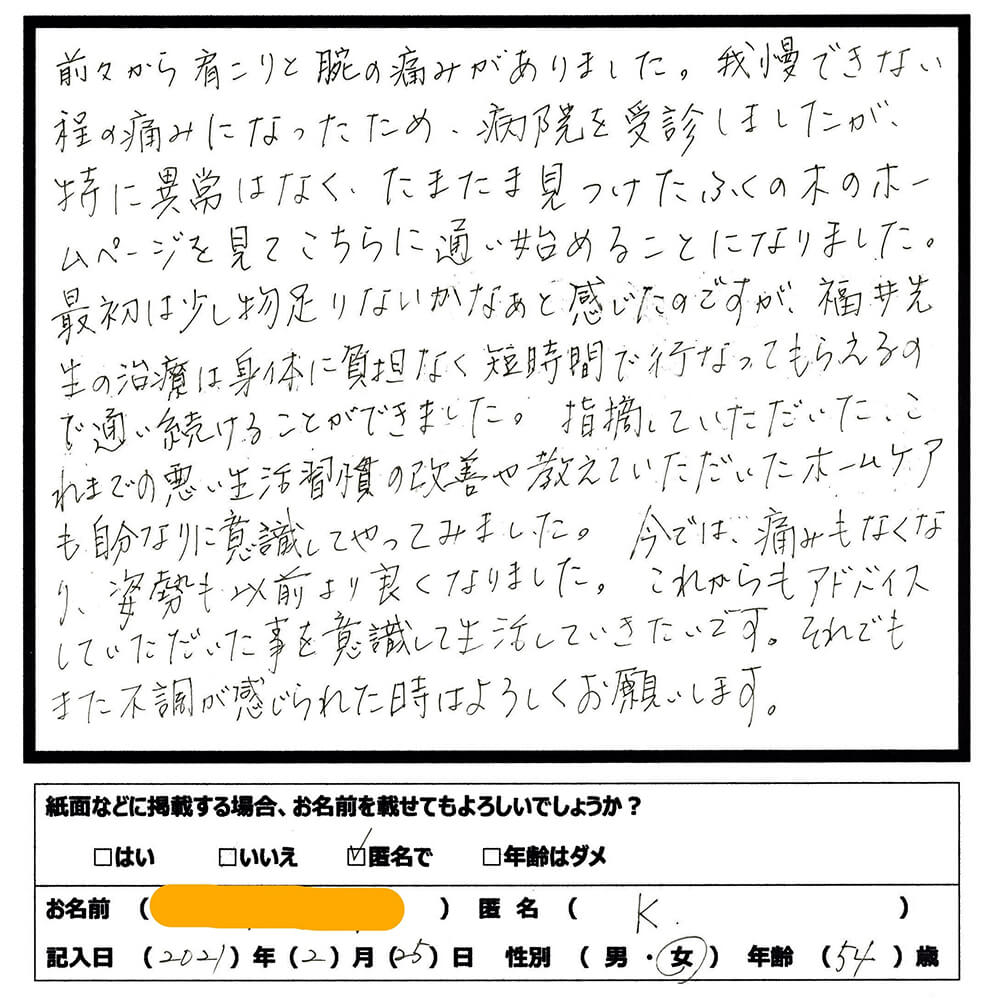 前々から肩こりと腕の痛みがありました。我慢できない
程の痛みになったため、病院を受診しましたが、
特に異常はなく、たまたま見つけたふくの木のホー
ムページを見てこちらに通い始めることになりました。
最初は少し物足りないかなぁと感じたのですが、福井先
生の治療は身体に負担なく短時間で行なってもらえるの
で通い続けることができました。指摘していただいた、こ
れまでの悪い生活習慣の改善や教えていただいたホームケア
も自分なりに意識してやってみました。今では、痛みもなくな
り、姿勢も以前より良くなりました。これからもアドバイス
していただいた事を意識して生活していきたいです。それでも
また不調が感じられた時はよろしくお願いします。
紙面などに掲載する場合、お名前を載せてもよろしいでしょうか？
□はい □いいえ ☑匿名で □年齢はダメ
お名前 （ ） 匿名 （ K. ）
記入日 （2021）年（2）月（25）日 性別 （男・女） 年齢 （54）歳